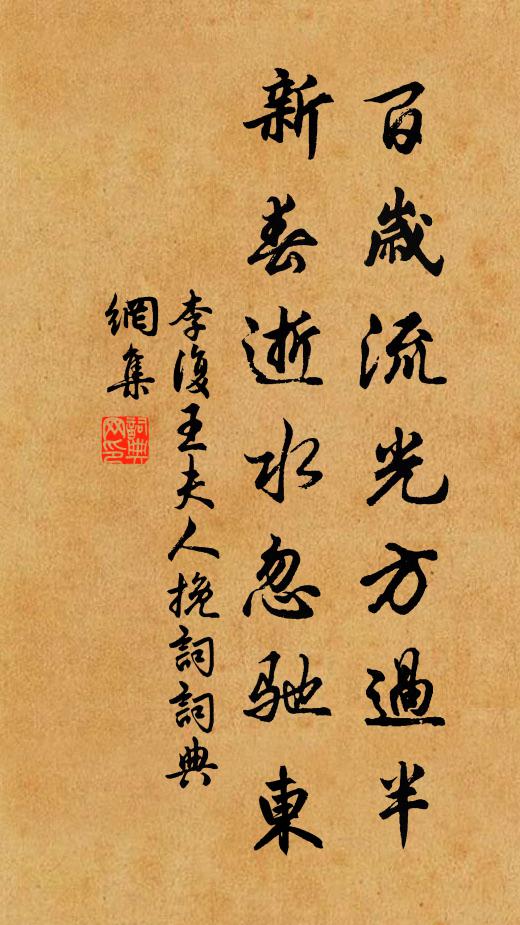 百歲流光方過半
新春逝水忽馳東
李復王夫人挽詞詞典
網集
詞典
网印